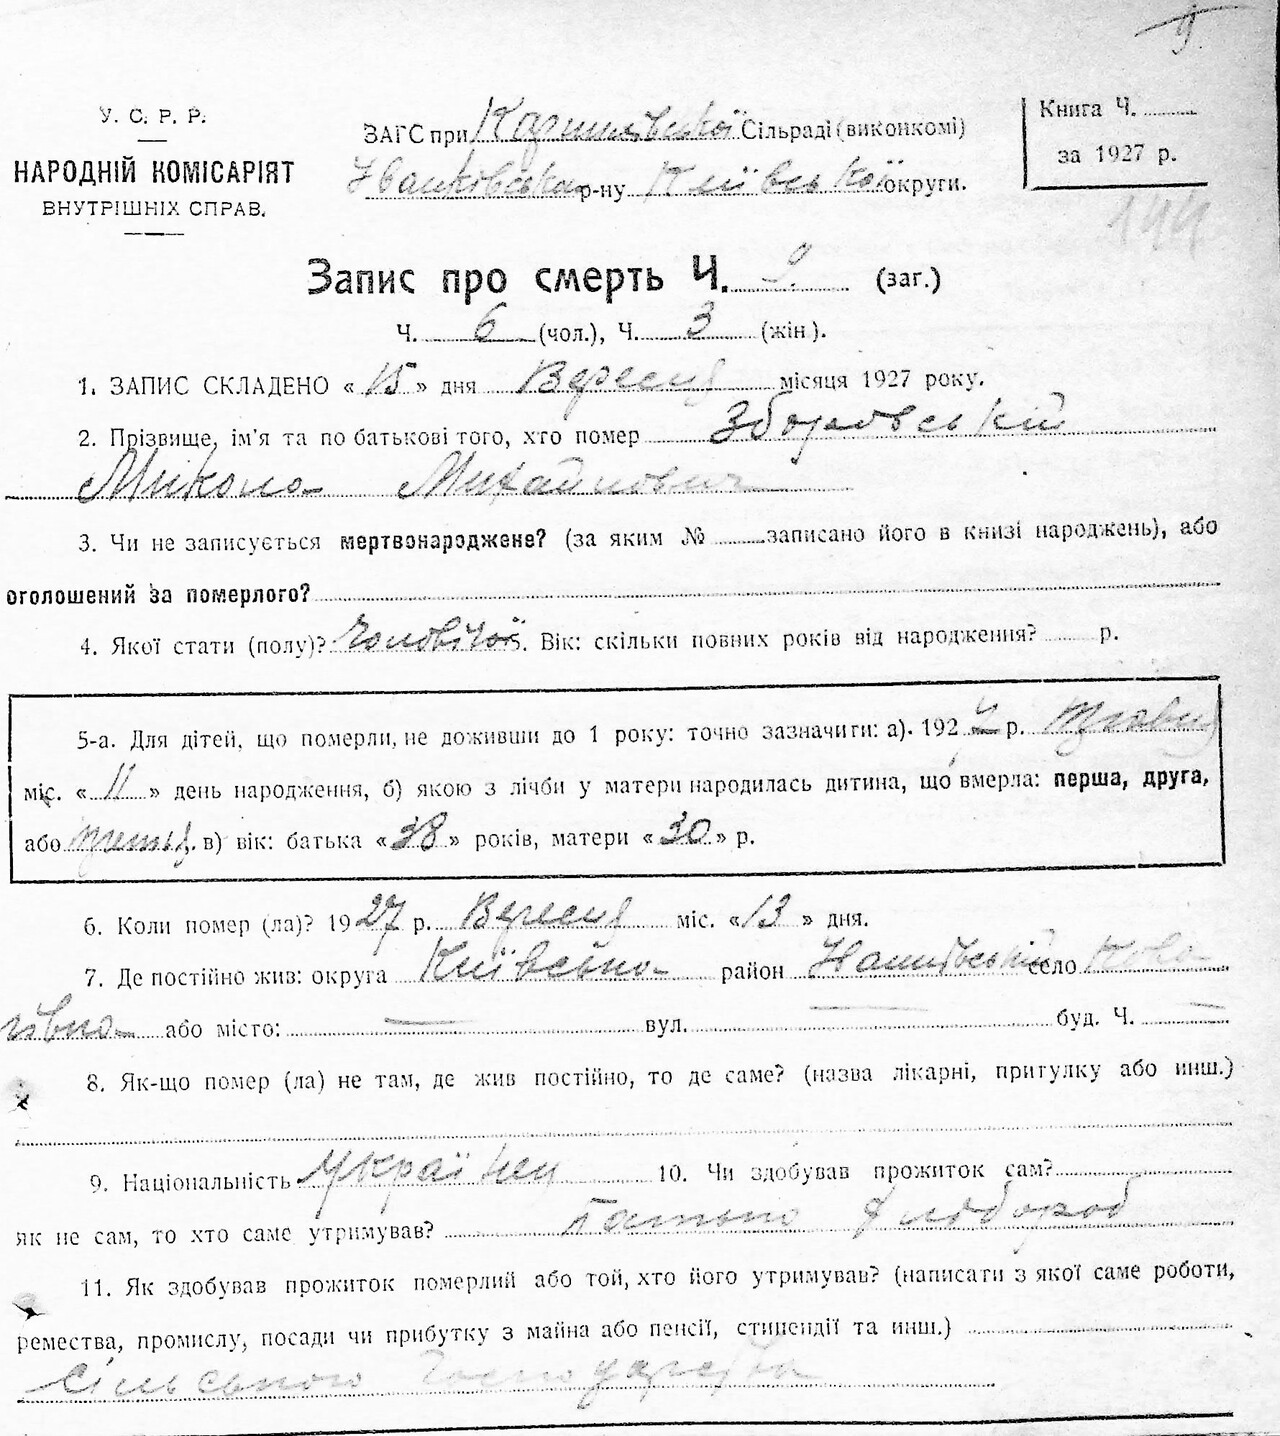 9
У. С. Р. Р.
НАРОДНІЙ КОМІСАРІЯТ
ВНУТРІШНІХ СПРАВ.
ЗАГС при Сільраді (виконкомі)
р-ну Київської округи.
Книга Ч.
за 1927 р.
144
Запис про смерть Ч. 9. (заг.)
Ч. 6 (чол.), Ч. 3 (жін).
1. ЗАПИС СКЛАДЕНО «15» дня Вересня місяця 1927 року.
2. Прізвище, ім'я та по батькові того, хто помер Зборовський
Микола Михайлович
3. Чи не записується мертвонароджене? (за яким № записано його в книзі народжень), або
оголошений за померлого?
4. Якої стати (полу)? чоловічої 5. Вік: скільки повних років від народження? р.
5-а. Для дітей, що померли, не доживши до 1 року: точно зазначити: а). 1927 р. Травня
міс. «11» день народження, б) якою з лічби у матери народилась дитина, що вмерла: перша, друга,
або третя. в) вік: батька «38» років, матери «30» р.
6. Коли помер (ла)? 1927 р. Вересня міс. «13» дня.
7. Де постійно жив: округа Київська район село
або місто: — вул. — буд. Ч. —
8. Як-що помер (ла) не там, де жив постійно, то де саме? (назва лікарні, притулку або инш.)
9. Національність Українец 10. Чи здобував прожиток сам?
як не сам, то хто саме утримував? батько хлібороб
11. Як здобував прожиток померлий або той, хто його утримував? (написати з якої саме роботи,
ремества, промислу, посади чи прибутку з майна або пенсії, стипендії та инш.)
сільського господарства